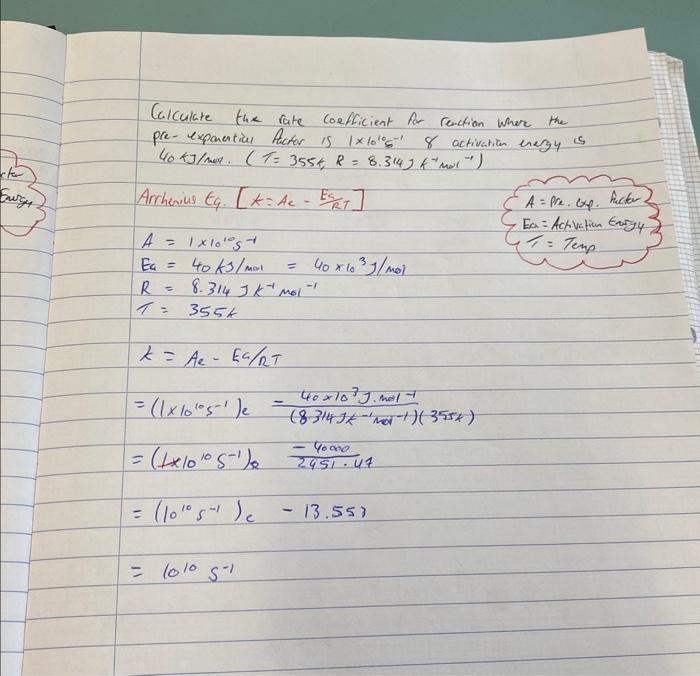 Calculate the rate coefficient for reaction where the
pre-exponential factor is 1x10¹⁰s⁻¹ & activation energy is
40 KJ/mol. (T= 355k, R = 8.314 J k⁻¹mol⁻¹)
Arrhenius Eq. [k=Ae - Ea/RT]
A = Pre. Exp. Factor
Ea = Activation Energy
T = Temp
ctor
Energy
A = 1x10¹⁰s⁻¹
Ea = 40 kJ/mol = 40x10³J/mol
R = 8.314 J K⁻¹ mol⁻¹
T = 355k
k = Ae - Ea/RT
= (1x10¹⁰s⁻¹)e - 40x10³J.mol⁻¹ / (8.314 Jk⁻¹mol⁻¹)(355k)
= (1x10¹⁰ s⁻¹)e -40000 / 2951.47
= (10¹⁰ s⁻¹)e - 13.553
= 10¹⁰ s⁻¹